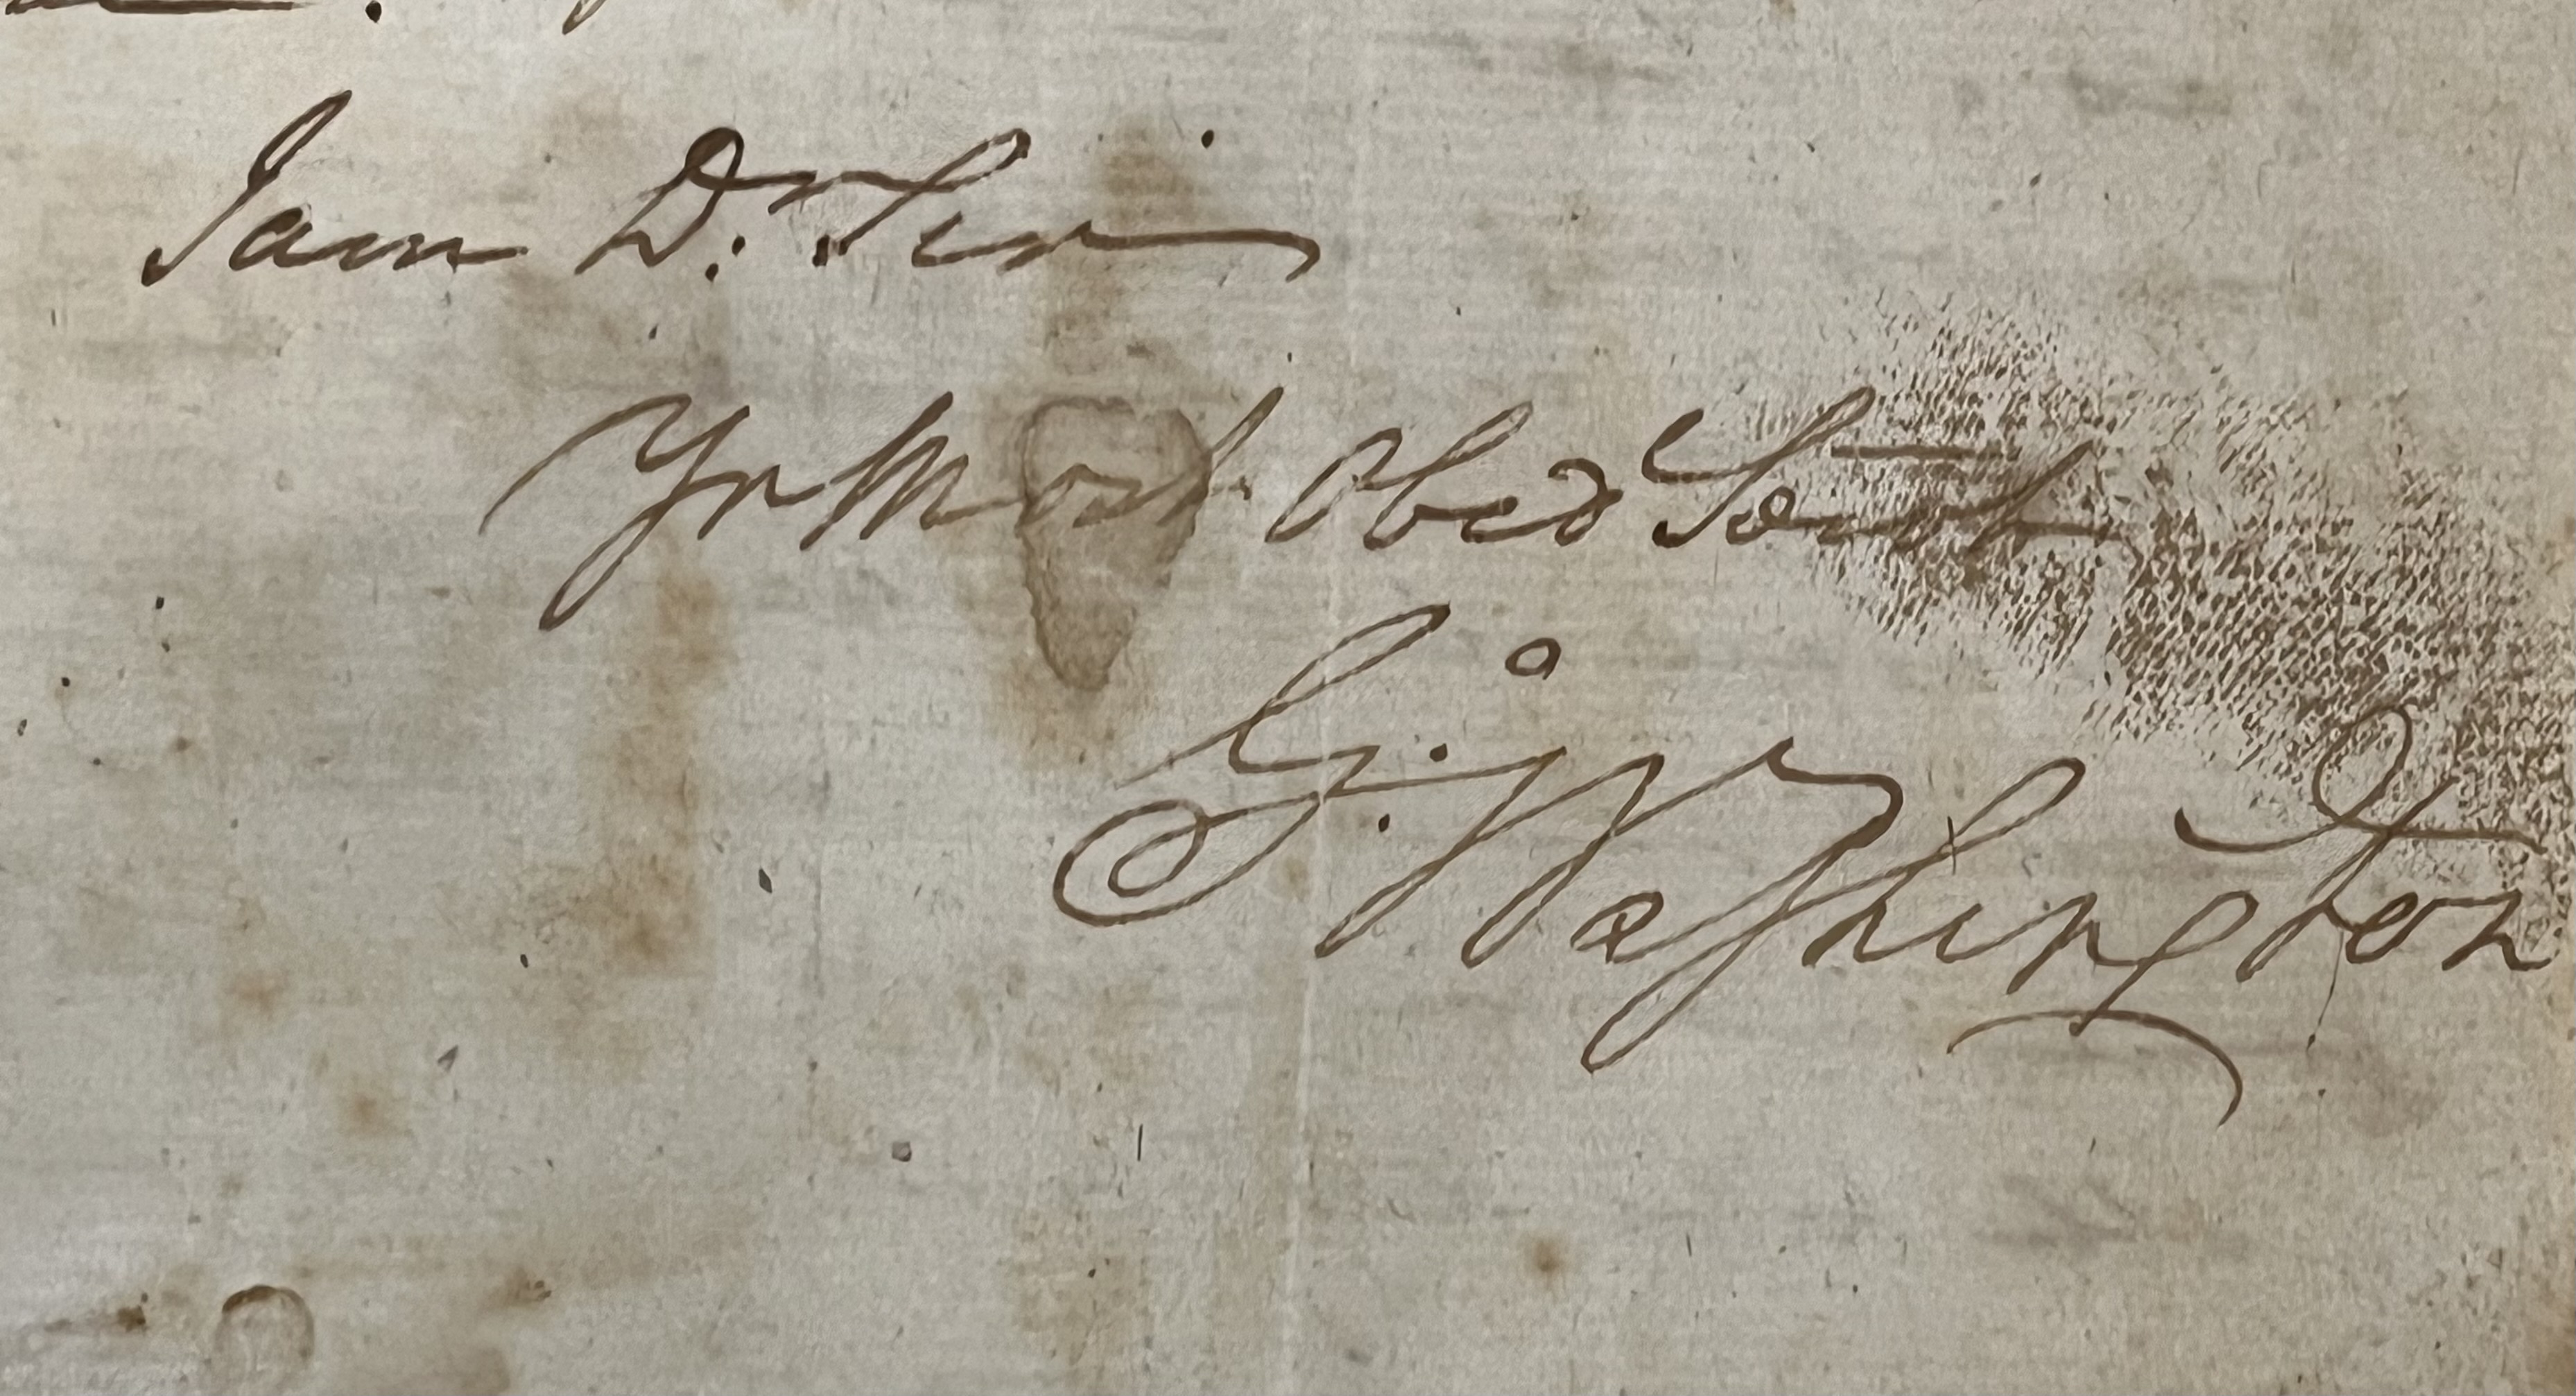 I am D.r Sir
Yr Most Obed Servt
G:o Washington